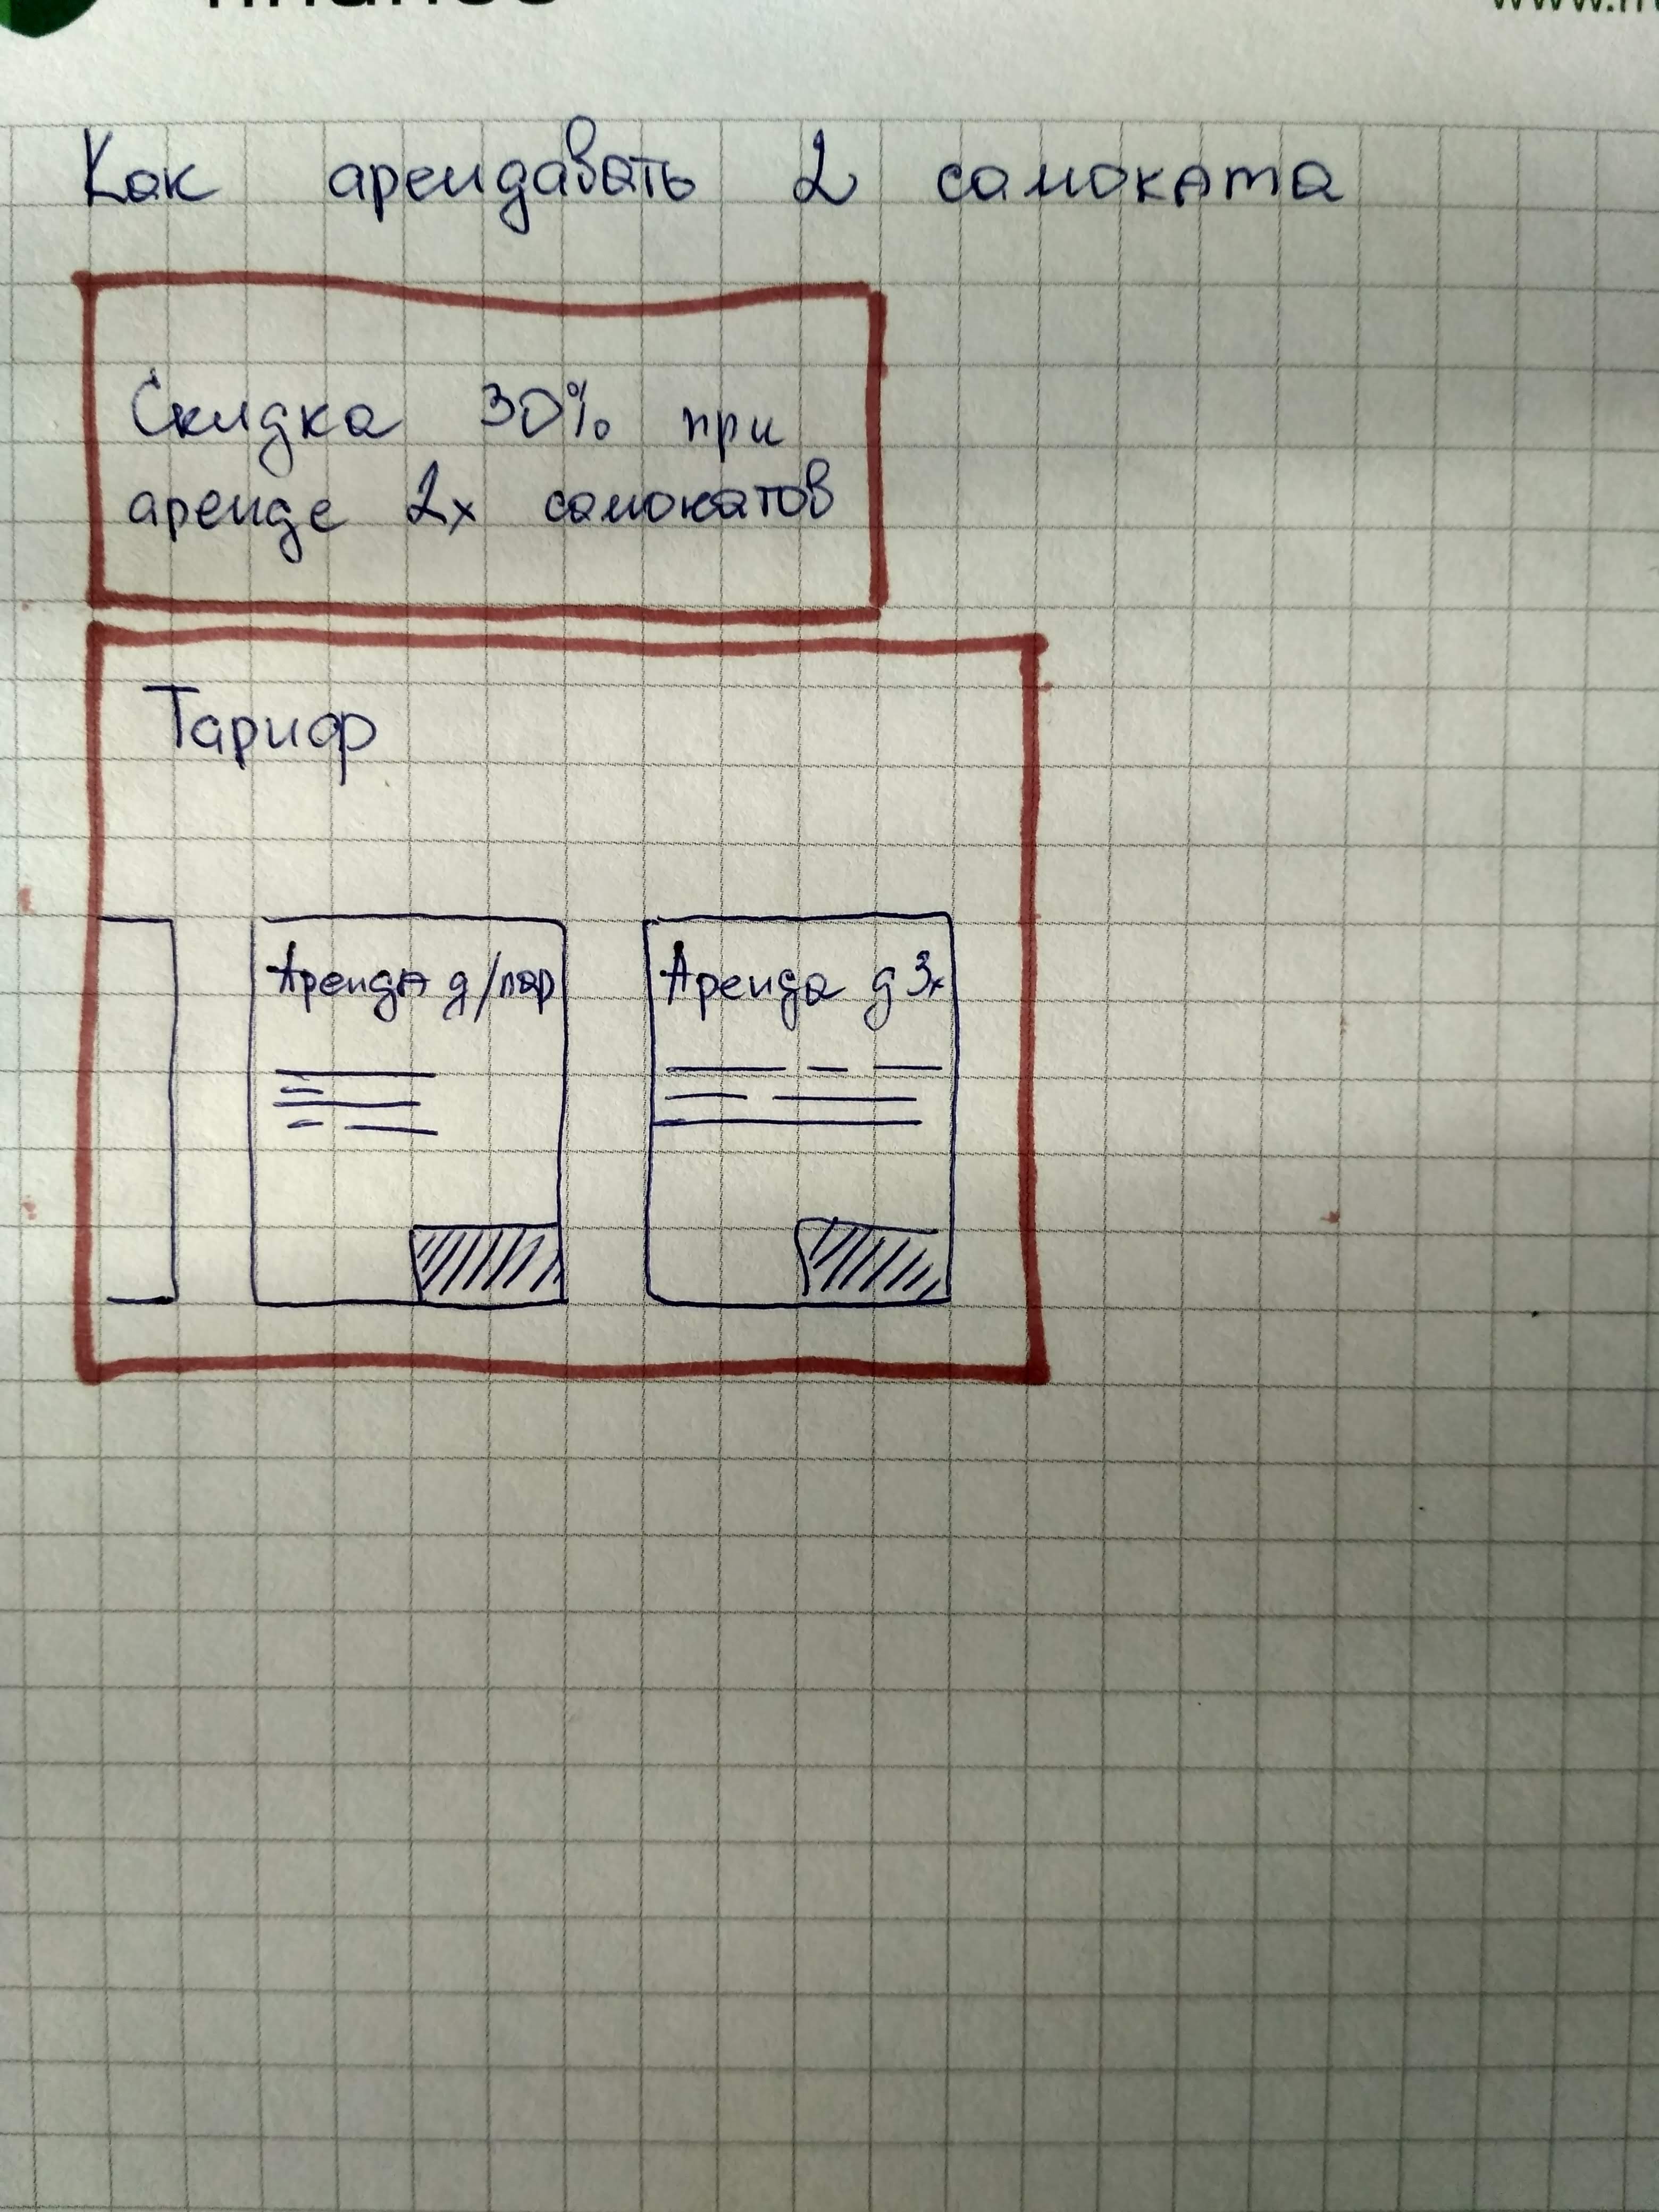 finance
Как арендавать 2 самоката
Скидка 30% при
аренде 2х самокатов
Тариф
Аренда д/пар
Аренда д 3х